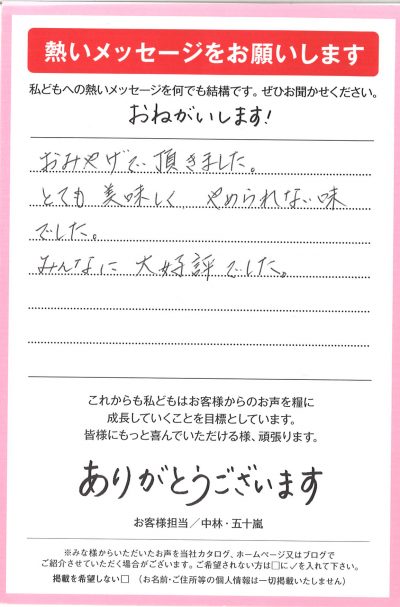 熱いメッセージをお願いします
私どもへの熱いメッセージを何でも結構です。ぜひお聞かせください。
おねがいします!
おみやげで頂きました。
とても美味しく、やめられない味
でした。
みんなに大好評でした。
これからも私どもはお客様からのお声を糧に
成長していくことを目標としています。
皆様にもっと喜んでいただける様、頑張ります。
ありがとうございます
お客様担当／中林・五十嵐
※みな様からいただいたお声を当社カタログ、ホームページ又はブログで
ご紹介させていただく場合がございます。ご希望されない方は□に✓を入れて下さい。
掲載を希望しない□ (お名前・ご住所等の個人情報は一切掲載いたしません)